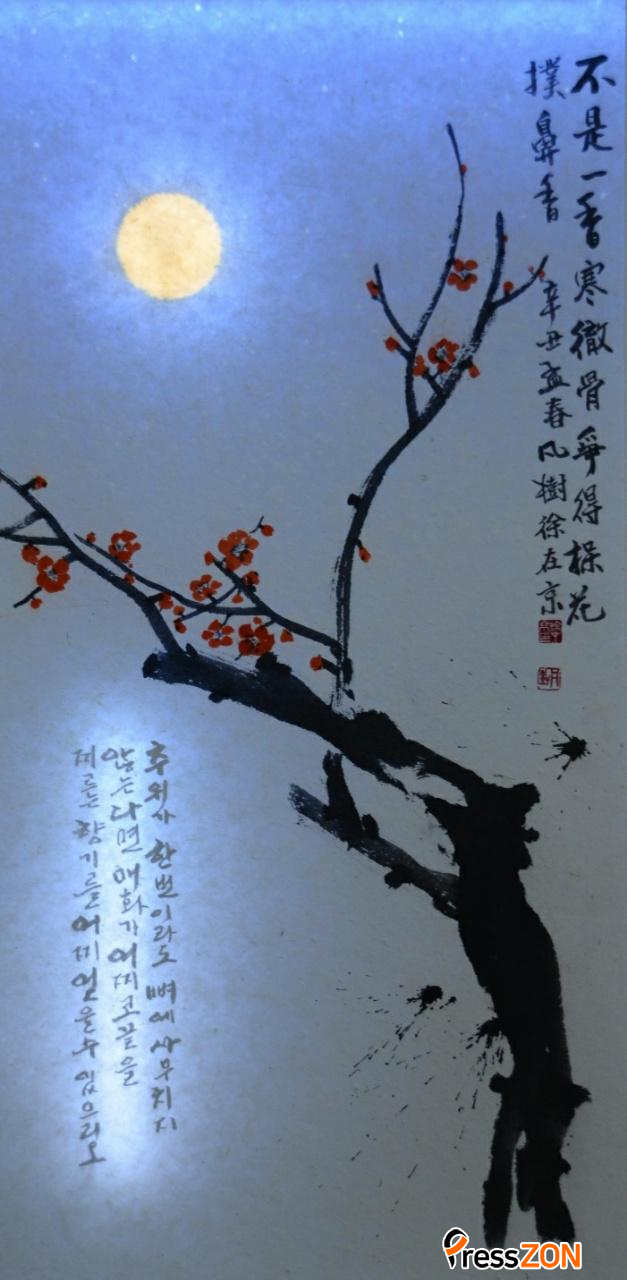 不是一番寒徹骨爭得楳花
撲鼻香 辛丑孟春凡樹徐在京
추위가 한번이라도 뼈에 사무치지
않는다면 매화가 어찌 코끝을
찌르는 향기를 어찌 얻을 수 있으리오
PressZON